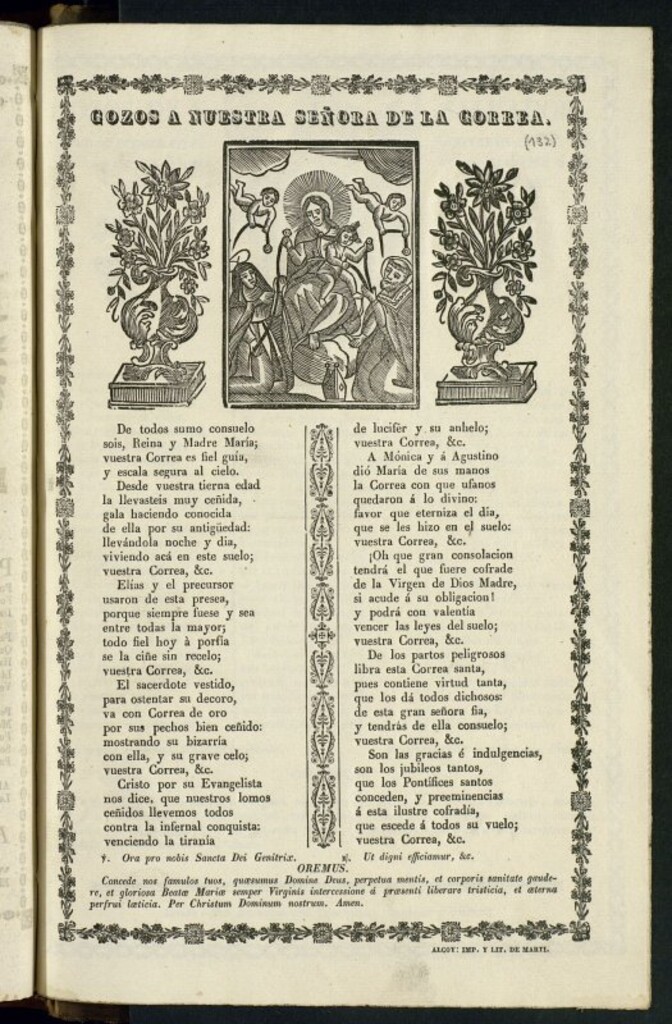 GOZOS A NUESTRA SEÑORA DE LA CORREA.
(132)
De todos sumo consuelo
sois, Reina y Madre María;
vuestra Correa es fiel guía,
y escala segura al cielo.
Desde vuestra tierna edad
la llevasteis muy ceñida,
gala haciendo conocida
de ella por su antigüedad:
llevándola noche y dia,
viviendo acá en este suelo;
vuestra Correa, &c.
Elías y el precursor
usaron de esta presea,
porque siempre fuese y sea
entre todas la mayor;
todo fiel hoy à porfia
se la ciñe sin recelo;
vuestra Correa, &c.
El sacerdote vestido,
para ostentar su decoro,
va con Correa de oro
por sus pechos bien ceñido:
mostrando su bizarría
con ella, y su grave celo;
vuestra Correa, &c.
Cristo por su Evangelista
nos dice, que nuestros lomos
ceñidos llevemos todos
contra la infernal conquista:
venciendo la tiranía
de lucifer y su anhelo;
vuestra Correa, &c.
A Mónica y á Agustino
dió María de sus manos
la Correa con que ufanos
quedaron á lo divino:
favor que eterniza el dia,
que se les hizo en el suelo:
vuestra Correa, &c.
¡Oh que gran consolacion
tendrá el que fuere cofrade
de la Virgen de Dios Madre,
si acude á su obligacion!
y podrá con valentía
vencer las leyes del suelo;
vuestra Correa, &c.
De los partos peligrosos
libra esta Correa santa,
pues contiene virtud tanta,
que los dá todos dichosos:
de esta gran señora fia,
y tendrás de ella consuelo;
vuestra Correa, &c.
Son las gracias é indulgencias,
son los jubileos tantos,
que los Pontífices santos
conceden, y preeminencias
á esta ilustre cofradía,
que escede á todos su vuelo;
vuestra Correa, &c.
℣. Ora pro nobis Sancta Dei Genitrix. ℟. Ut digni efficiamur, &c.
OREMUS.
Concede nos famulos tuos, quæsumus Domine Deus, perpetua mentis, et corporis sanitate gaude-
re, et gloriosa Beatæ Mariæ semper Virginis intercessione á præsenti liberare tristicia, et æterna
perfrui læticia. Per Christum Dominum nostrum. Amen.
ALCOY: IMP. Y LIT. DE MARTI.